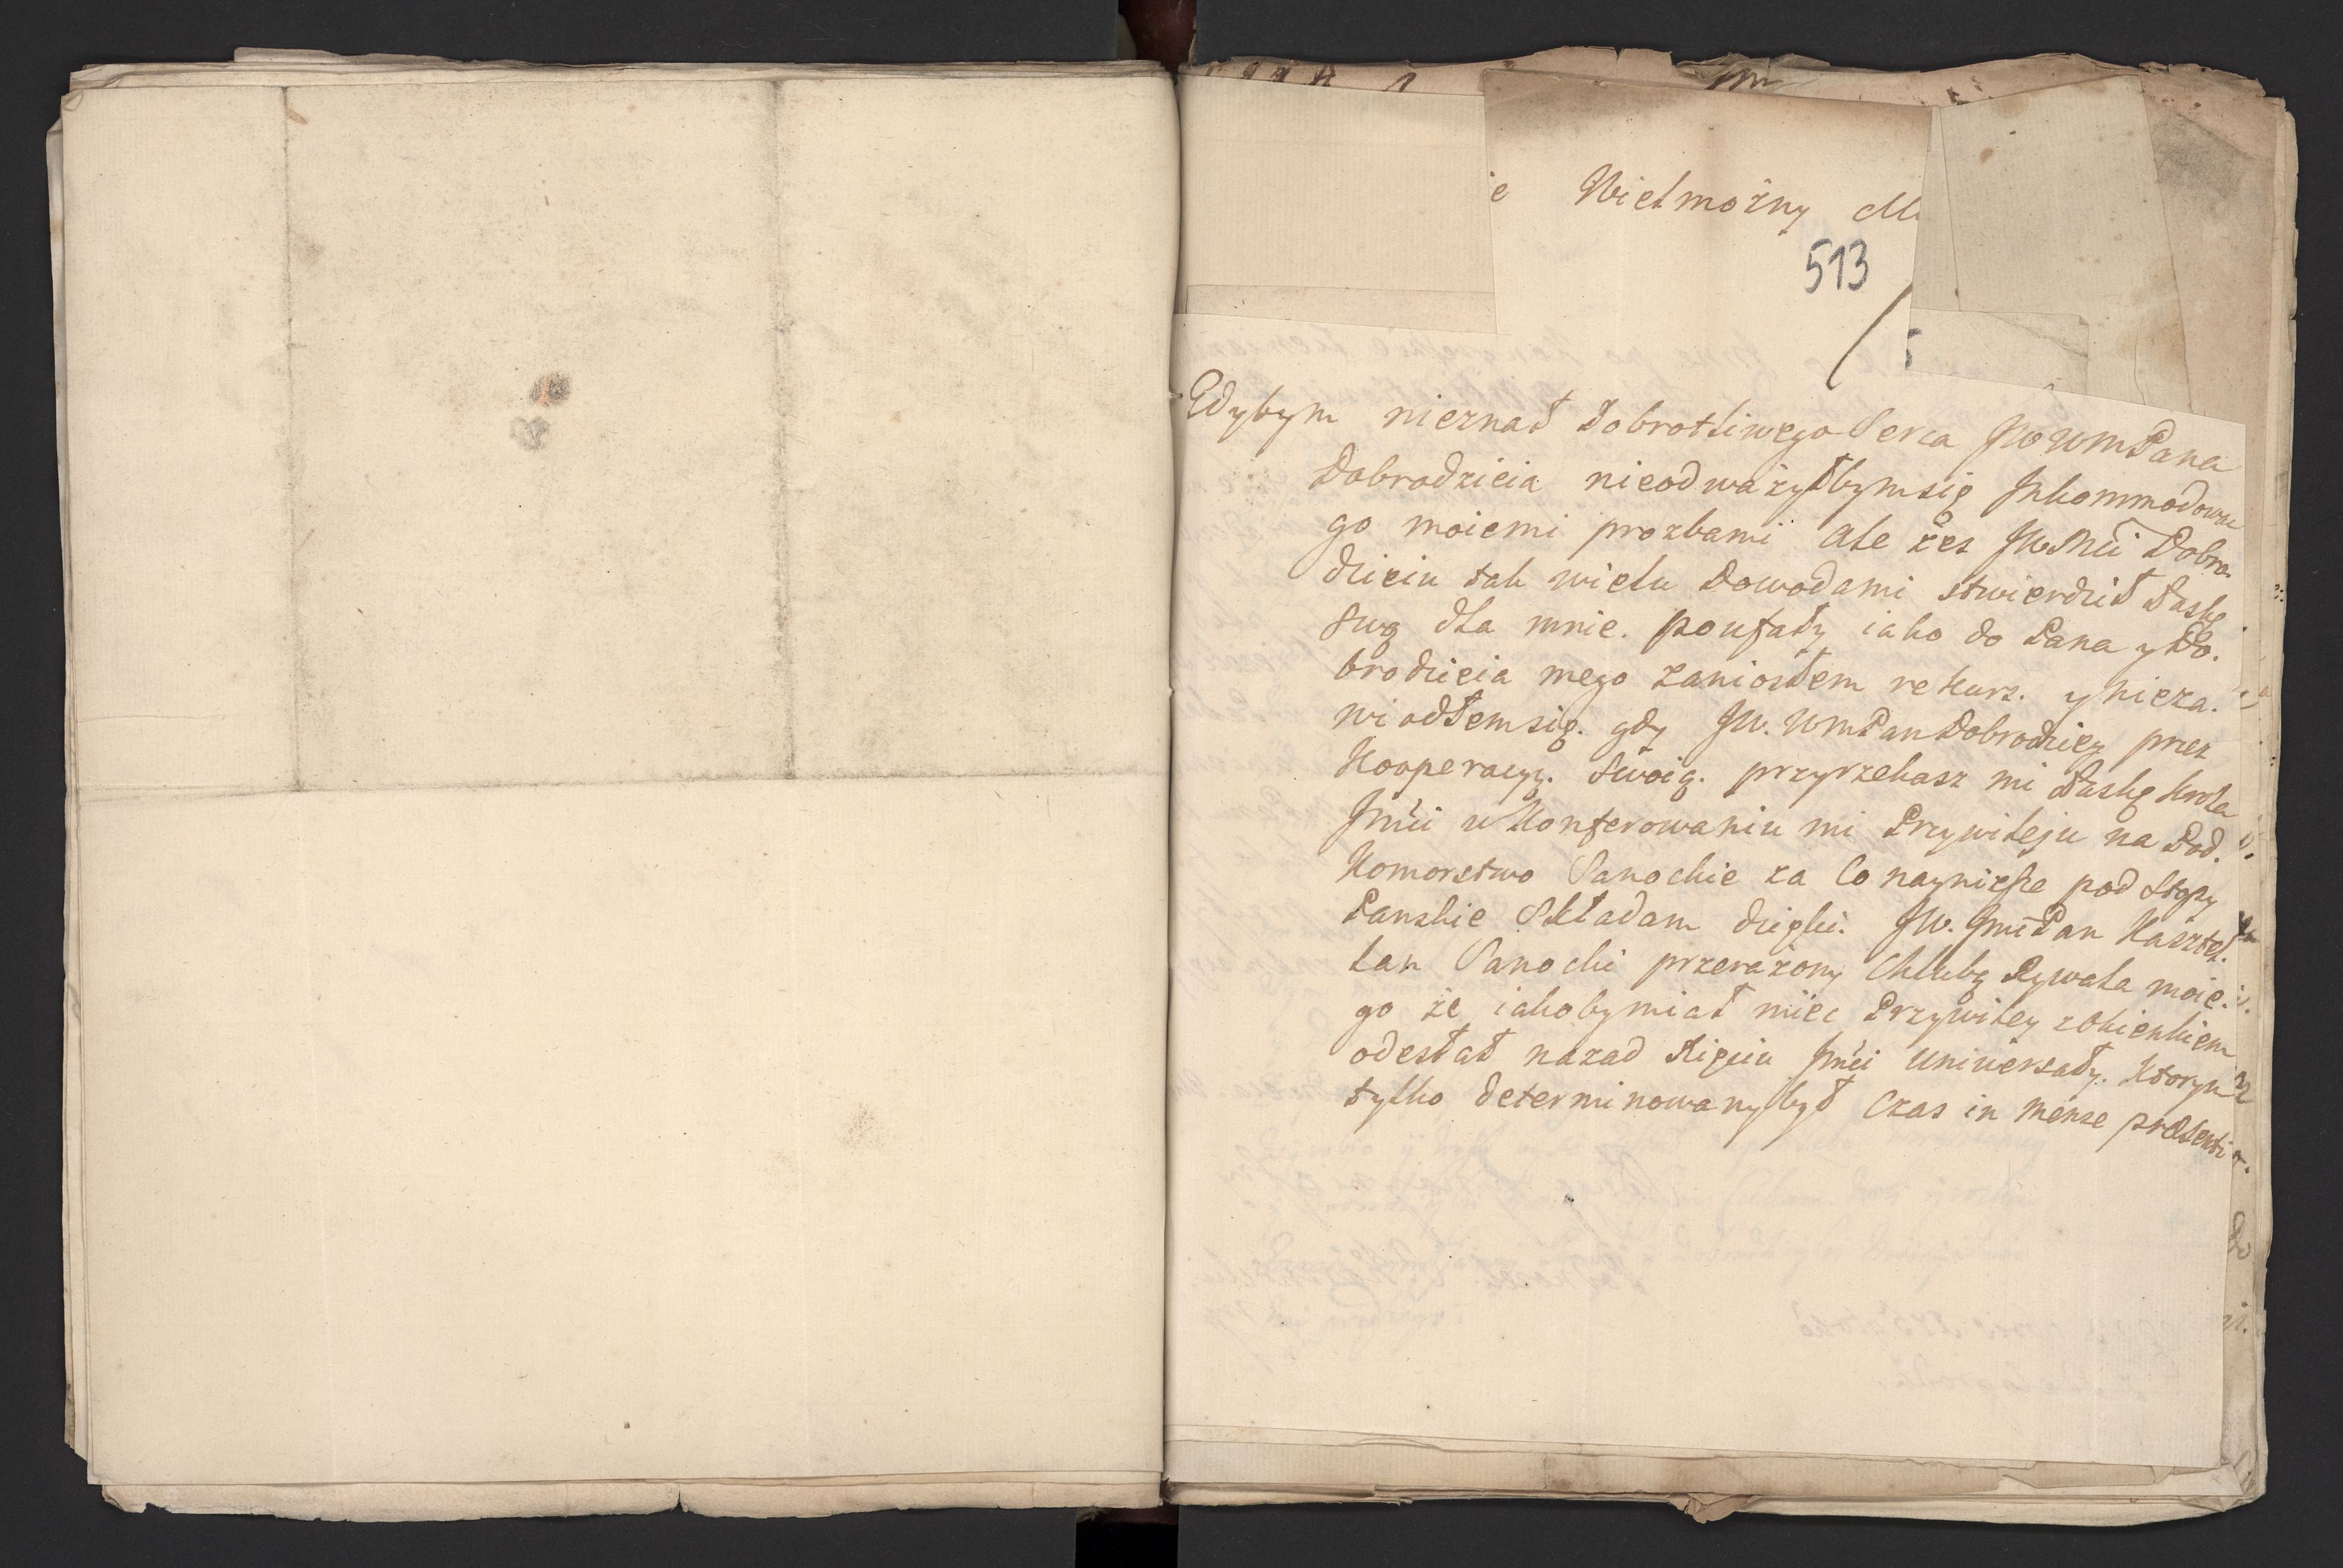 e Wielmożny M
513
5
Gdybym nieznał Dobrotliwego Serca JWWMPana
Dobrodzieia nieodważyłbymsię Jnkommodowac
go moiemi prozbami ale żes JWMći Dobro-
dzieiu tak wielu Dowodami stwierdził Łaskę
swą dla mnie. poufały iako do Pana y Do.
brodzieia mego zaniosłem rekurs. y nieza.
wiodłemsię. gdy JW. WMPan Dobrodziey przez
Kooperacyą. Swoią. przyrzekasz mi Łaskę Krola
Jmći w Konferowaniu mi Przywileju na Pod.
Komorstwo Sanockie za Co nayniższe pod Stopy
Panskie Składam dzięki. JW. JmćPan Kasztel.
lan Sanocki przerażony Chlubą Rywala moie.
go że iakoby miał miec Przywiley z Okienkiem
odesłał nazad Xięciu Jmći Uniwersały. Ktorym
tylko determinowany był Czas in mense præsenti